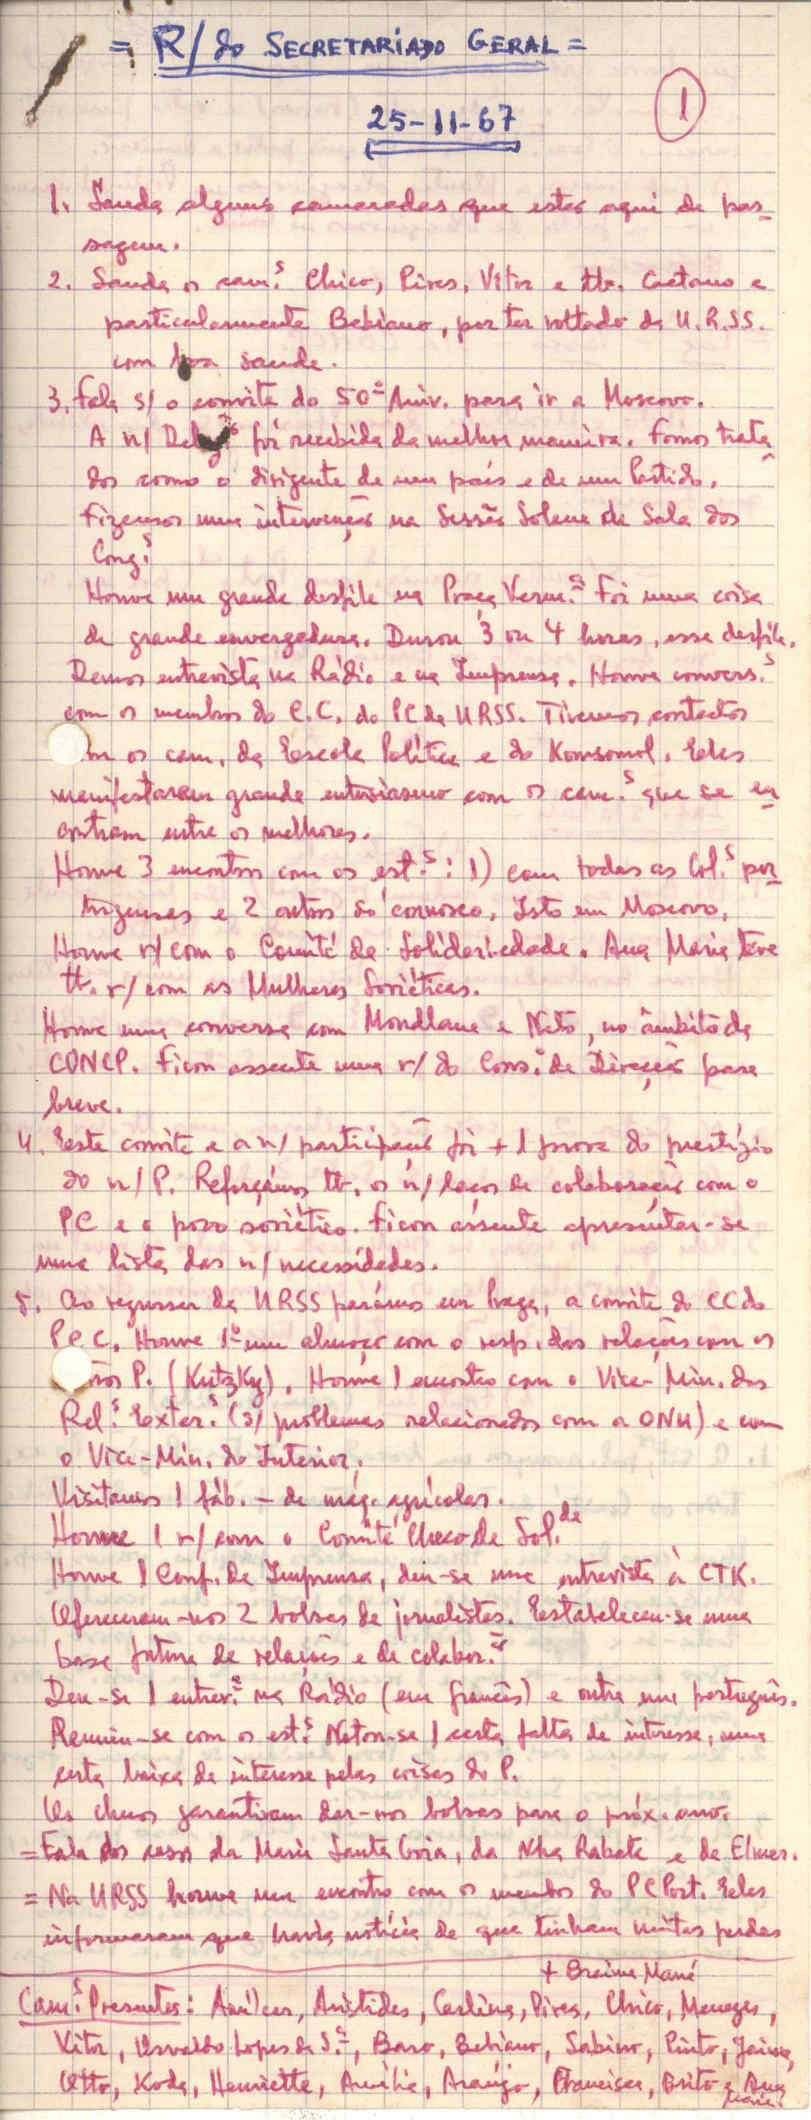 = R/ do SECRETARIADO GERAL =
25-11-67
1
1. Sauda alguns camaradas que estão aqui de pas-
sagem.
2. Sauda os cam.s Chico, Pires, Vitor e tb. Caetano e
particularmente Bebiano, por ter voltado da U.R.S.S.
com boa saude.
3. Fala s/ o convite do 50º Aniv. para ir a Moscovo.
A n/ Deleg.ão foi recebida da melhor maneira. Fomos trata
dos como o dirigente de um país e de um Partido.
Fizemos uma intervenção na Sessão Solene da Sala dos
Cong.s
Houve um grande desfile na Praça Verm.a Foi uma coisa
de grande envergadura. Durou 3 ou 4 horas, esse desfile.
Demos entrevista na Rádio e na Imprensa. Houve convers.s
com os membros do C.C. do PC da URSS. Tivemos contactos
m os cam. da Escola Política e do Komsomol. Eles
manifestaram grande entusiasmo com os cam.s que se en
contram entre os melhores.
Houve 3 encontros com os est.s: 1) com todas as Col.s por
tuguesas e 2 outros só connosco. Isto em Moscovo.
Houve r/ com o Comité de Solidariedade. Ana Maria teve
tb. r/ com as Mulheres Soviéticas.
Houve uma conversa com Mondlane e Neto, no âmbito da
CONCP. Ficou assente uma r/ do Cons.o de Direcção para
breve.
4. Este convite e a n/ participação foi + 1 prova do prestígio
do n/ P. Reforçámos tb. os n/ laços de colaboração com o
PC e o povo soviético. Ficou assente apresentar-se
uma lista das n/ necessidades.
5. Ao regressar da URSS parámos em Praga, a convite do CC do
P.C.C. Houve 1º um almoço com o resp. das relações com os
P. (Kutzky). Houve 1 encontro com o Vice-Min. dos
Rel.s Exter.s (s/ problemas relacionados com a ONU) e com
o Vice-Min. do Interior.
Visitamos 1 fáb. - de maq. agrícolas.
Houve 1 r/ com o Comité Checo de Sol.de
Houve 1 Conf. de Imprensa, deu-se uma entrevista à CTK.
Ofereceram-nos 2 bolsas de jornalistas. Estabeleceu-se uma
base futura de relações e de colabor.ão
Deu-se 1 entrev.a na Rádio (em francês) e outra em português.
Reuniu-se com os est.s Notou-se 1 certa falta de interesse, uma
certa baixa de interesse pelas coisas do P.
Os checos garantiram dar-nos bolsas para o próx. ano.
= Fala dos casos da Maria Santa Coia, da Nha Rabata e de Elmer.
= Na URSS houve um encontro com os membros do PC Port. Eles
informaram que havia notícia de que tinham muitas perdas
+ Braima Mané
Cam.s Presentes: Amílcar, Aristides, Carlina, Pires, Chico, Meneges,
Vitor, Osvaldo Lopes da S.a, Baro, Bebiano, Sabino, Pinto, Jaime,
Otto, Koda, Henriette, Amélia, Araújo, Francisca, Brito e Ana
Maria.